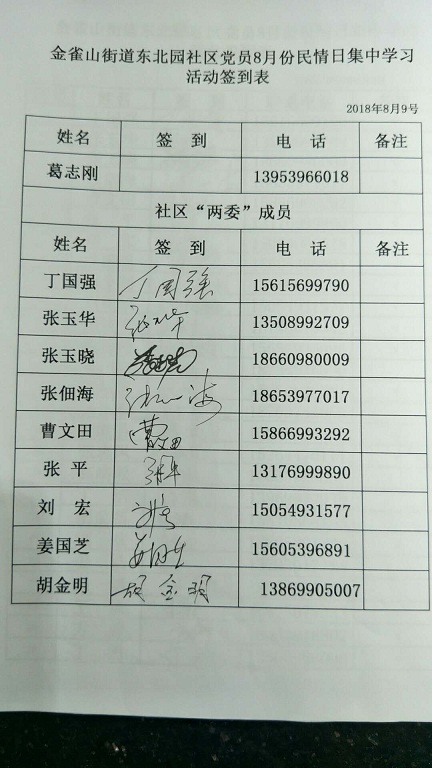 金雀山街道东北园社区党员8月份民情日集中学习
活动签到表
2018年8月9号
姓名 签 到 电 话 备注
葛志刚 13953966018
社区“两委”成员
姓名 签 到 电 话 备注
丁国强 丁国强 15615699790
张玉华 13508992709
张玉晓 18660980009
张佃海 18653977017
曹文田 曹文田 15866993292
张 平 张平 13176999890
刘 宏 15054931577
姜国芝 15605396891
胡金明 胡金明 13869905007